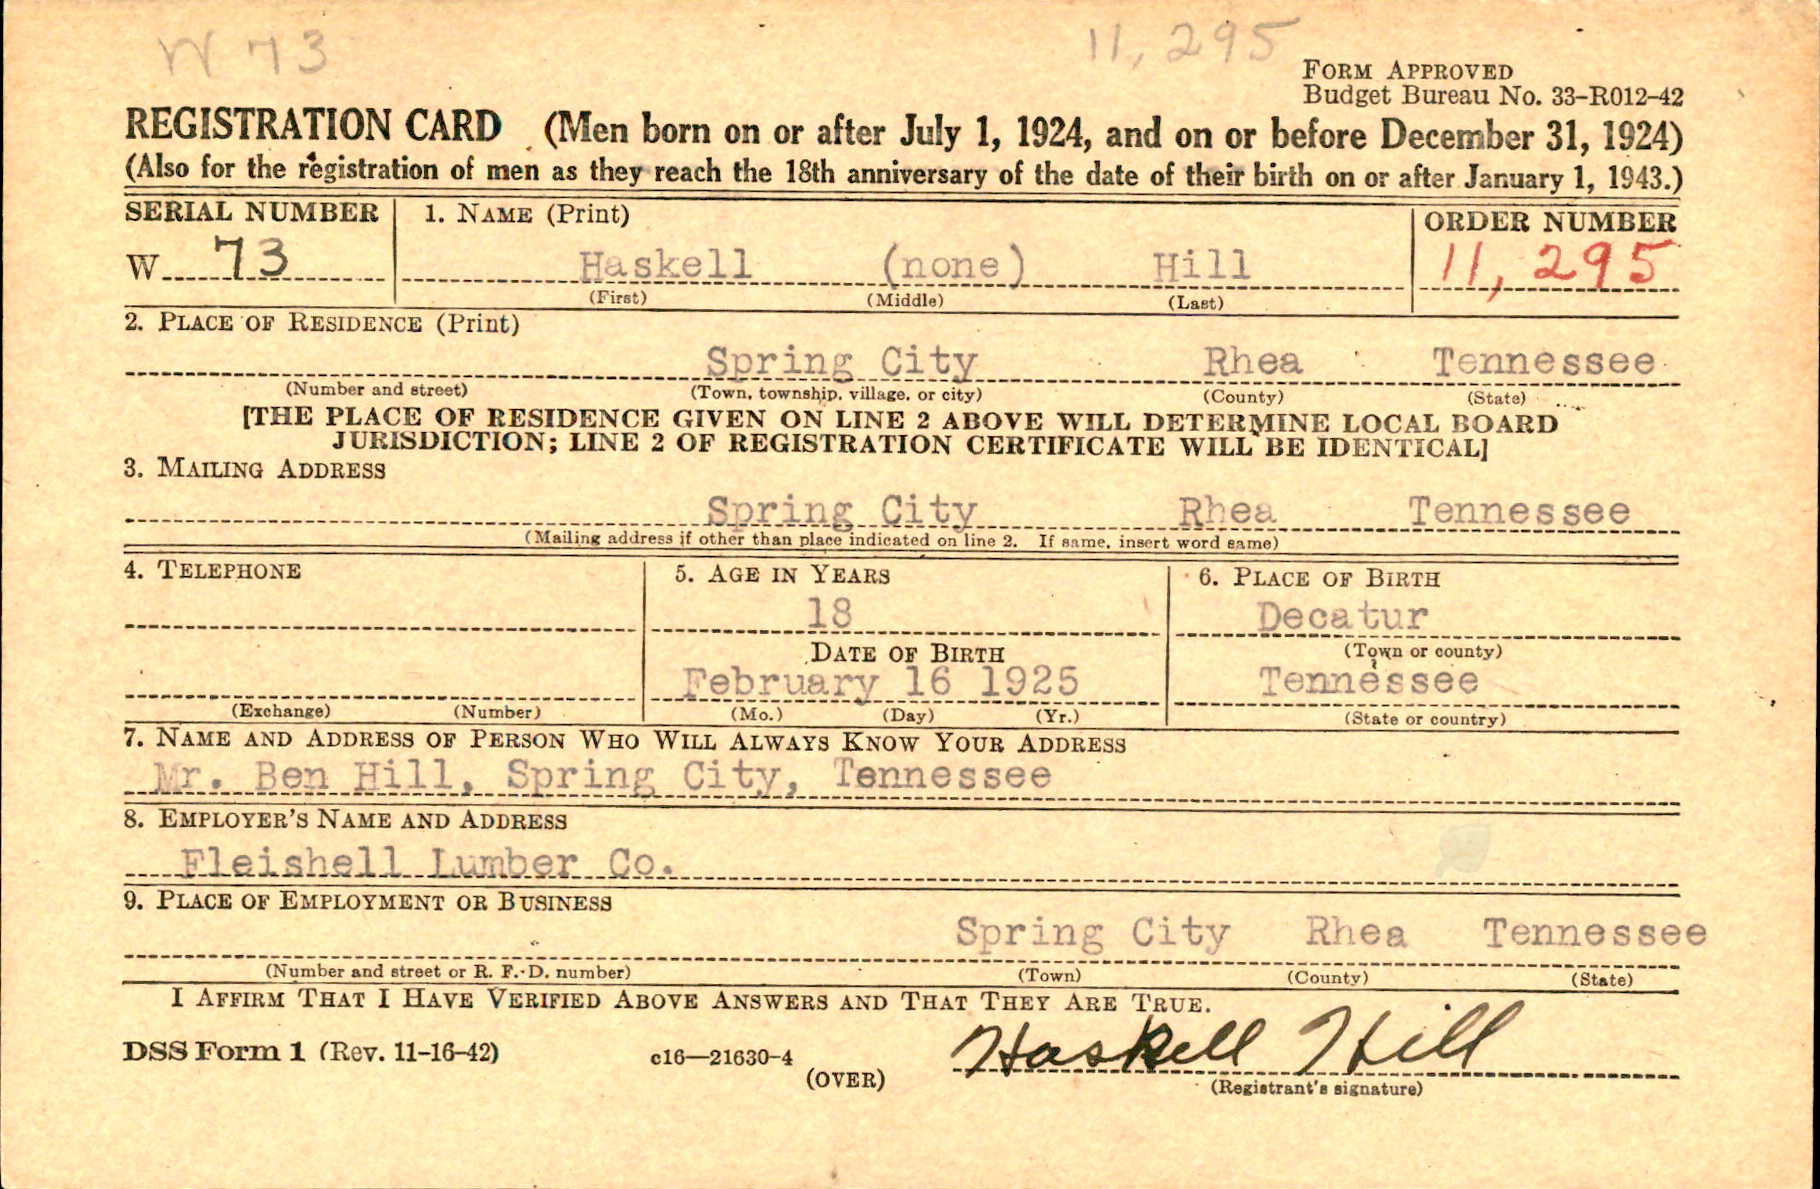 W 73 11,295
FORM APPROVED
Budget Bureau No. 33-R012-42
REGISTRATION CARD (Men born on or after July 1, 1924, and on or before December 31, 1924)
(Also for the registration of men as they reach the 18th anniversary of the date of their birth on or after January 1, 1943.)
SERIAL NUMBER 1. NAME (Print) ORDER NUMBER
W 73 Haskell (none) Hill 11,295
(First) (Middle) (Last)
2. PLACE OF RESIDENCE (Print)
Spring City Rhea Tennessee
(Number and street) (Town, township, village, or city) (County) (State)
[THE PLACE OF RESIDENCE GIVEN ON LINE 2 ABOVE WILL DETERMINE LOCAL BOARD
JURISDICTION; LINE 2 OF REGISTRATION CERTIFICATE WILL BE IDENTICAL]
3. MAILING ADDRESS
Spring City Rhea Tennessee
(Mailing address if other than place indicated on line 2. If same, insert word same)
4. TELEPHONE 5. AGE IN YEARS 6. PLACE OF BIRTH
18 Decatur
DATE OF BIRTH (Town or county)
February 16 1925 Tennessee
(Exchange) (Number) (Mo.) (Day) (Yr.) (State or country)
7. NAME AND ADDRESS OF PERSON WHO WILL ALWAYS KNOW YOUR ADDRESS
Mr. Ben Hill, Spring City, Tennessee
8. EMPLOYER'S NAME AND ADDRESS
Fleishell Lumber Co.
9. PLACE OF EMPLOYMENT OR BUSINESS
Spring City Rhea Tennessee
(Number and street or R. F. D. number) (Town) (County) (State)
I AFFIRM THAT I HAVE VERIFIED ABOVE ANSWERS AND THAT THEY ARE TRUE.
DSS Form 1 (Rev. 11-16-42) c16—21630-4 Haskell Hill
(OVER) (Registrant's signature)